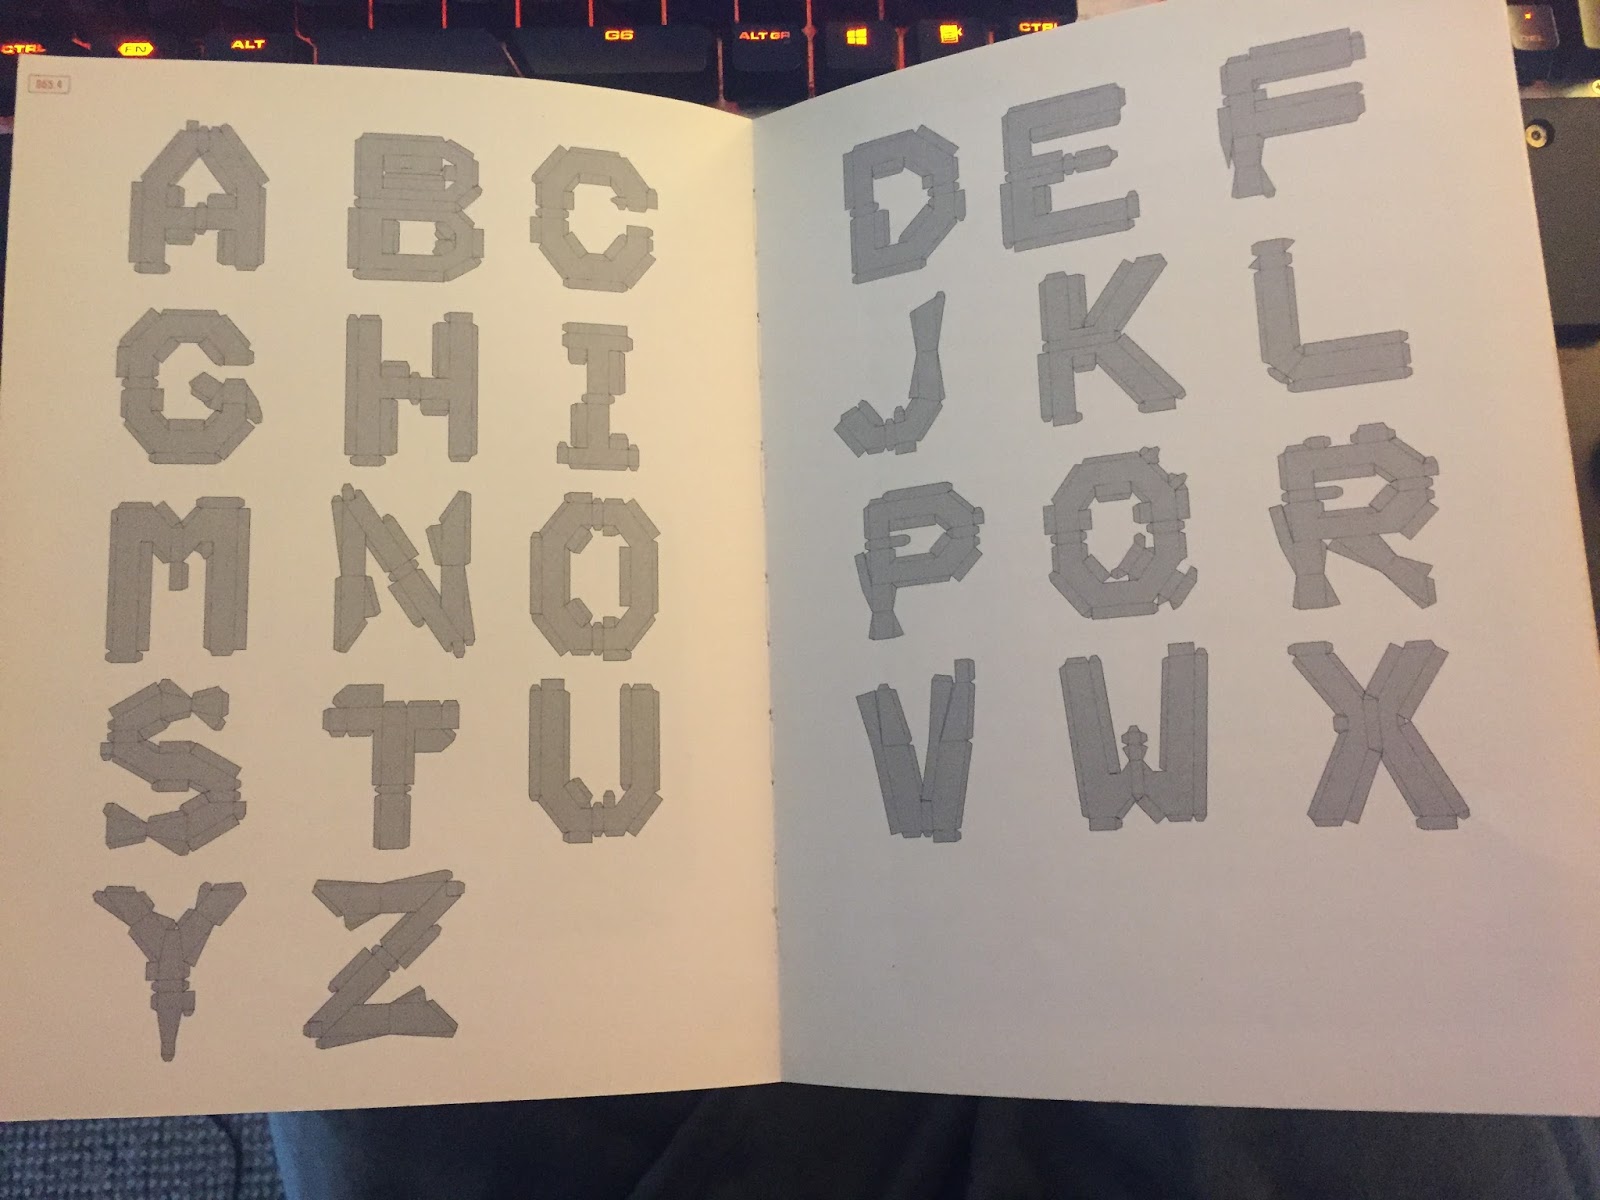 CTRL FN ALT G6 ALT GR CTRL
065.4
A B C D E F
G H I J K L
M N O P Q R
S T U V W X
Y Z